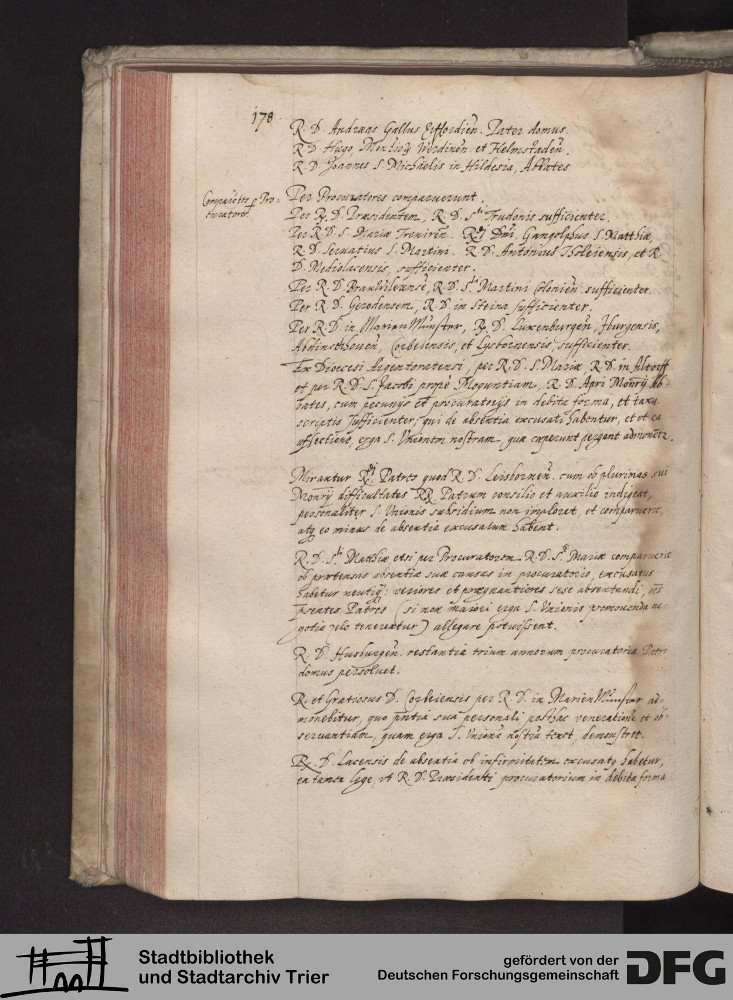 178
R. D. Andræas Gallus Erffordien̄. Pater domus.
R D. Hugo, Werdinen̄. et Helmstaden̄.
R. D. Joannes S. Michaëlis in Hildesia, Abbates
Comparentes p Pro-
curatores.
Per Procuratores comparuerunt.
Per R. D. Præsidentem, R. D. S.ti Trudonis sufficienter.
Per R. D. S. Mariæ Treuiren̄. R.di Dn̄i, Gangolphus S. Matthiæ,
R. D. Seruatius S. Martini. R. D. Antonius Tholeiensis, et R.
D. Mediolacensis, sufficienter.
Per R. D. Brauwileænse, R. D. S.ti Martini Colonien̄. sufficienter.
Per R. D. Gerodensem, R. D. in Steina sufficienter.
Per R. D. in Marien Münster, R. D. Luxenburgen̄, Iburgensis,
Abdinckhouen̄, Corbeiensis, et Lysbornensis sufficienter.
Ex Diœcesi Argentoratensi, per R. D. S. Mariæ, R. D. in Altorff
et per R. D. S. Jacobi propè Moguntiam, R. D. Apri Monrij Ab-
bates, cum pecunijs et procuratorijs in debita forma, et taxa
scriptis sufficienter, qui de absentia excusati habentur, et vt ea
affectione, erga S. Vnionem nostram, qua cæperunt pergant admonētr.
Mirantur R.di Patres quod R. D. Leisbornen̄. cum ob plurimas sui
Monrij difficultates RR. Patrum consilio et auxilio indigeat,
personaliter S. Vnionis subsidium non imploret, et comparuerit,
atq eo minus de absentia excusatum habent.
R. D. S.ti Matthiæ etsi per Procuratorem R. D. S.tæ Mariæ comparuerit
ob prætensas absentiæ suæ causas in procuratorio, excusatus
habetur neutiq: veriores et prægnantiores sese absentandi, oēs
psentes Patres (si non maiori erga S. Vnionis promouenda ne-
gotia zelo tenerentur) allegare potuissent.
R. D. Husburgen̄. restantia trium annorum procuratoria Patri
domus persoluet.
R. et Gratiosus D. Corbeiensis per R. D. in Marien Münster ad-
monebitur, quo pntiâ suâ personali posthac venerationē et ob-
seruantiam, quam erga S. Vnionē nostrā tenet, demonstret.
R. D. Lacensis de absentia ob infirmitatem excusatq habetur,
ea tamen lege, vt R. D. Præsidenti procuratorium in debita forma
Stadtbibliothek
und Stadtarchiv Trier
gefördert von der
Deutschen Forschungsgemeinschaft
DFG